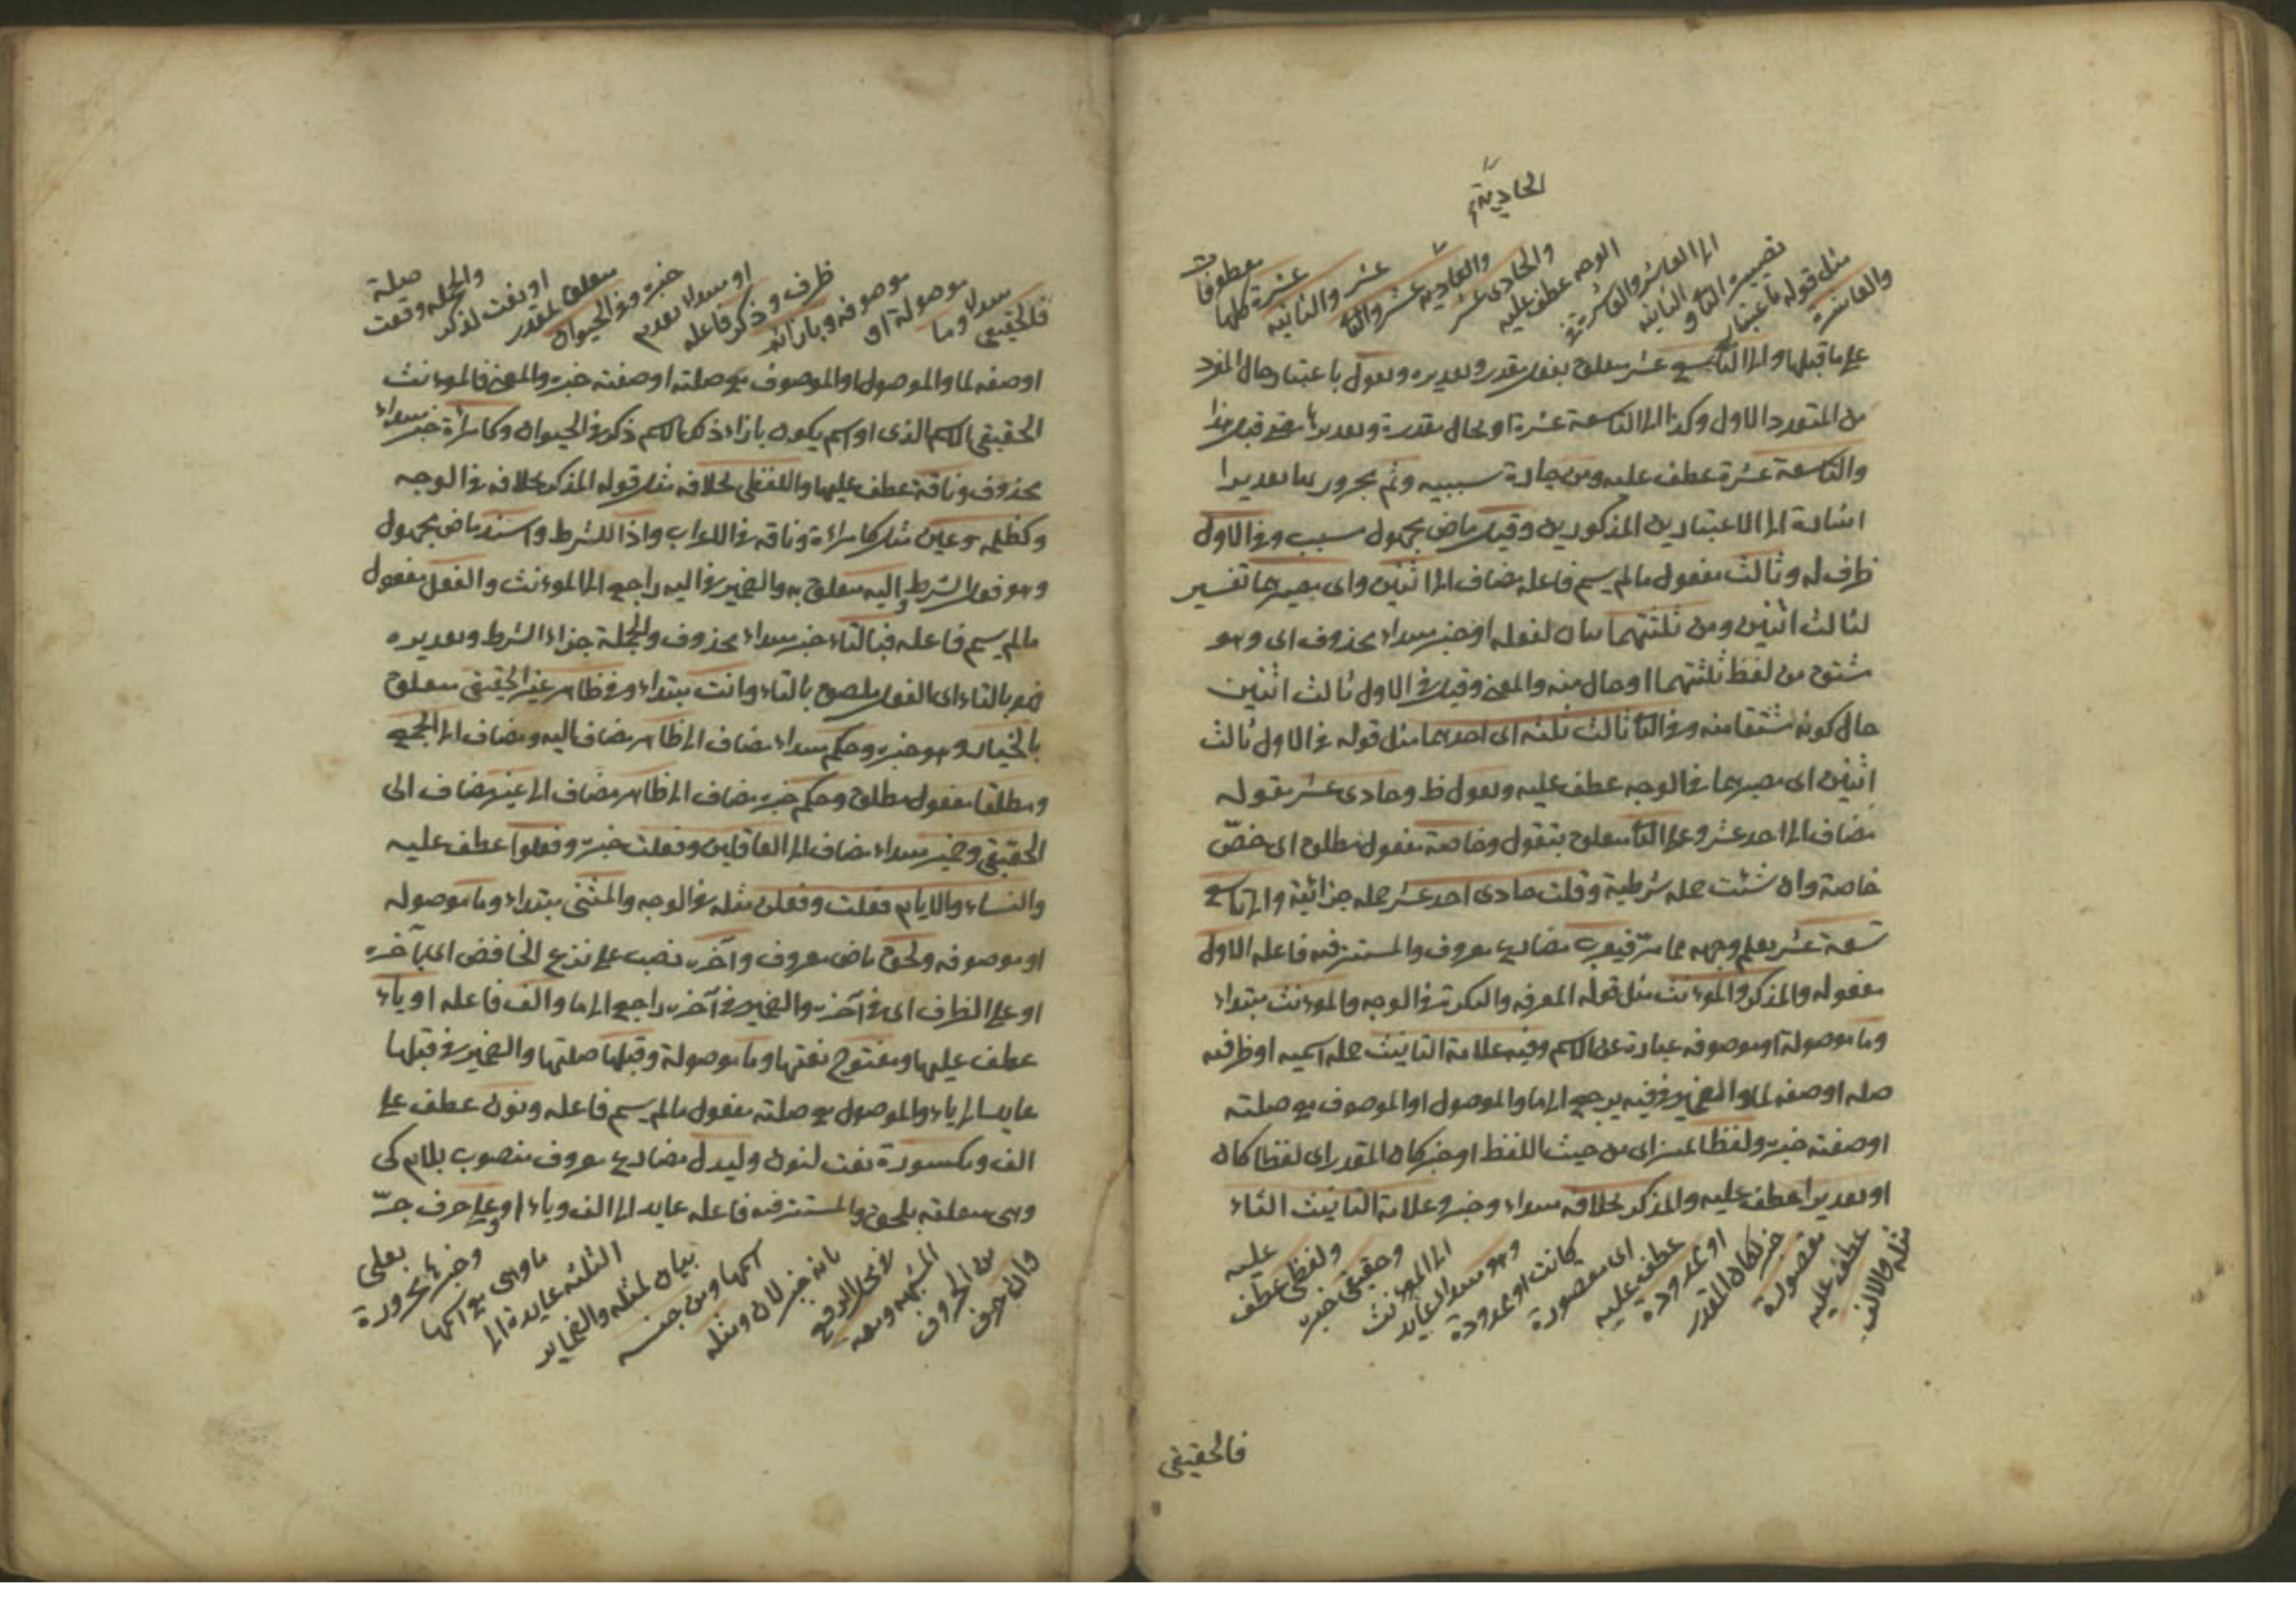 الحادية
والعاشرة
مثل قوله باعتبار
تصييره الثاني والثانية
الى العاشر والعاشرة في
الوجه عطف عليه
والحادي عشر
والحادية عشر والثاني
عشر والثانية
عشرة كلها
معطوفات
على ما قبلها والى التاسع عشر متعلق بفعل مقدر وتقديره وتقول باعتبار حال المفرد
من المتعدد الاول وكذا الى التاسعة عشرة او بحال مقدرة وتقديرها
والتاسعة عشرة عطف عليه ومن جارة سببيه وثم مجرور بها تقديرا
اشارة الى الاعتبارين المذكورين وقيل ماض مجهول سبب وفي الاول
ظرف له وثالث مفعول مالم يسم فاعله مضاف الى اثنين واى مصيرهما تفسير
لثالث اثنين ومن ثلثتهما بيان لفعله او خبر مبتداء محذوف اى وهو
مشتق من لفظ ثلثتهما او حال منه والمعنى وقيل في الاول ثالث اثنين
حال كونه مشتقا منه وفي الثاني ثالث ثلثه اى احدهما مثل قوله في الاول ثالث
اثنين اى مصيرهما في الوجه عطف عليه وتقول ظ وحادى عشر مقوله
مضاف الى احد عشر وعلى الثاني متعلق بتقول وخاصة مفعول مطلق اى خصّ
خاصة وان شئت جمله شرطية وقلت حادى احد عشر جمله جزائية والى تاسع
تسعة عشر يعلم وجهه مما مرّ فيعرب مضارع معروف والمستتر فيه فاعله الاول
مفعوله والمذكر والمؤنث مثل قوله المعرفه والنكرة في الوجه والمؤنث مبتداء
وما موصولة او موصوفه عبارة عن الاسم وفيه علامة التانيث جمله اسميه او ظرفيه
صله او صفه لما والضمير في فيه يرجع الى ما والموصول او الموصوف مع صلته
او صفته خبره ولفظا تمييز اى من حيث اللفظ او خبر كان المقدر اى لفظا كان
او تقديرا عطف عليه والمذكر بخلافه مبتداء وخبر وعلامة التانيث التاء
مثله والالف
عطف عليه
مقصورة
خبر لكان المقدر
او ممدودة
عطف عليه
اى مقصورة
كانت او ممدودة
وهو مبتدا عايد
الى المؤنث
وحقيقى خبره
ولفظى عطف
عليه
فالحقيقى
فالحقيقى
مبتدا وما
موصولة او
موصوفه وبازائه
ظرف وذكر فاعله
او مبتدا مقدم
خبره وفي الحيوان
متعلق لمقدر
او نعت لذكر
والجمله وقعت
صلة
او صفه لما والموصول او الموصوف مع صلته او صفته خبره والمعنى فالمؤنث
الحقيقى الاسم الذى او اسم يكون بازاءه ذكر الاسم ذكر في الحيوان وكامراة خبر مبتداء
محذوف وناقة عطف عليها واللفظى بخلافه مثل قوله المذكر بخلافه في الوجه
وكظلمه وعين مثل كامراة وناقة في الاعراب واذا للشرط واسند ماض مجهول
وهو فعل الشرط واليه متعلق به والضمير في اليه راجع الى المؤنث والفعل مفعول
مالم يسم فاعله فبالتاء خبر مبتداء محذوف والجملة جزاء الشرط وتقديره
فهو بالتاء اى الفعل ملصق بالتاء وانت مبتداء وفي ظاهر غير الحقيقى متعلق
بالخيار وهو خبره وحكم مبتداء مضاف الى ظاهر مضاف اليه ومضاف الى الجمع
ومطلقا مفعول مطلق وحكم خبره مضاف الى ظاهر مضاف الى غير مضاف الى
الحقيقى وضمير مبتداء مضاف الى العاقلين وفعلت خبره وفعلوا عطف عليه
والنساء والايام فعلت وفعلن مثله في الوجه والمثنى مبتداء وما موصوله
او موصوفه ولحق ماض معروف وآخره نصب على نزع الخافض اى بآخره
او على الظرف اى في آخره والضمير في آخره راجع الى ما والف فاعله او ياء
عطف عليها ومفتوح نعتها وما موصولة وقبلها صلتها والضمير في قبلها
عايد الى ياء والموصول مع صلته مفعول مالم يسم فاعله ونون عطف على
الف ومكسورة نعت لنون وليدل مضارع معروف منصوب بلام كى
وهى متعلقه بلحق والمستتر فيه فاعله عايد الى الف وياء او على حرف جرّ
وان حرف
من الحروف
المشبهه ومعه
في محل الرفع
بانه خبر لان ومثله
اسمها ومن جنسه
بيان لمثله والضماير
الثلثه عايدة الى
ما وهى مع اسمها
وخبرها مجرورة
بعلى